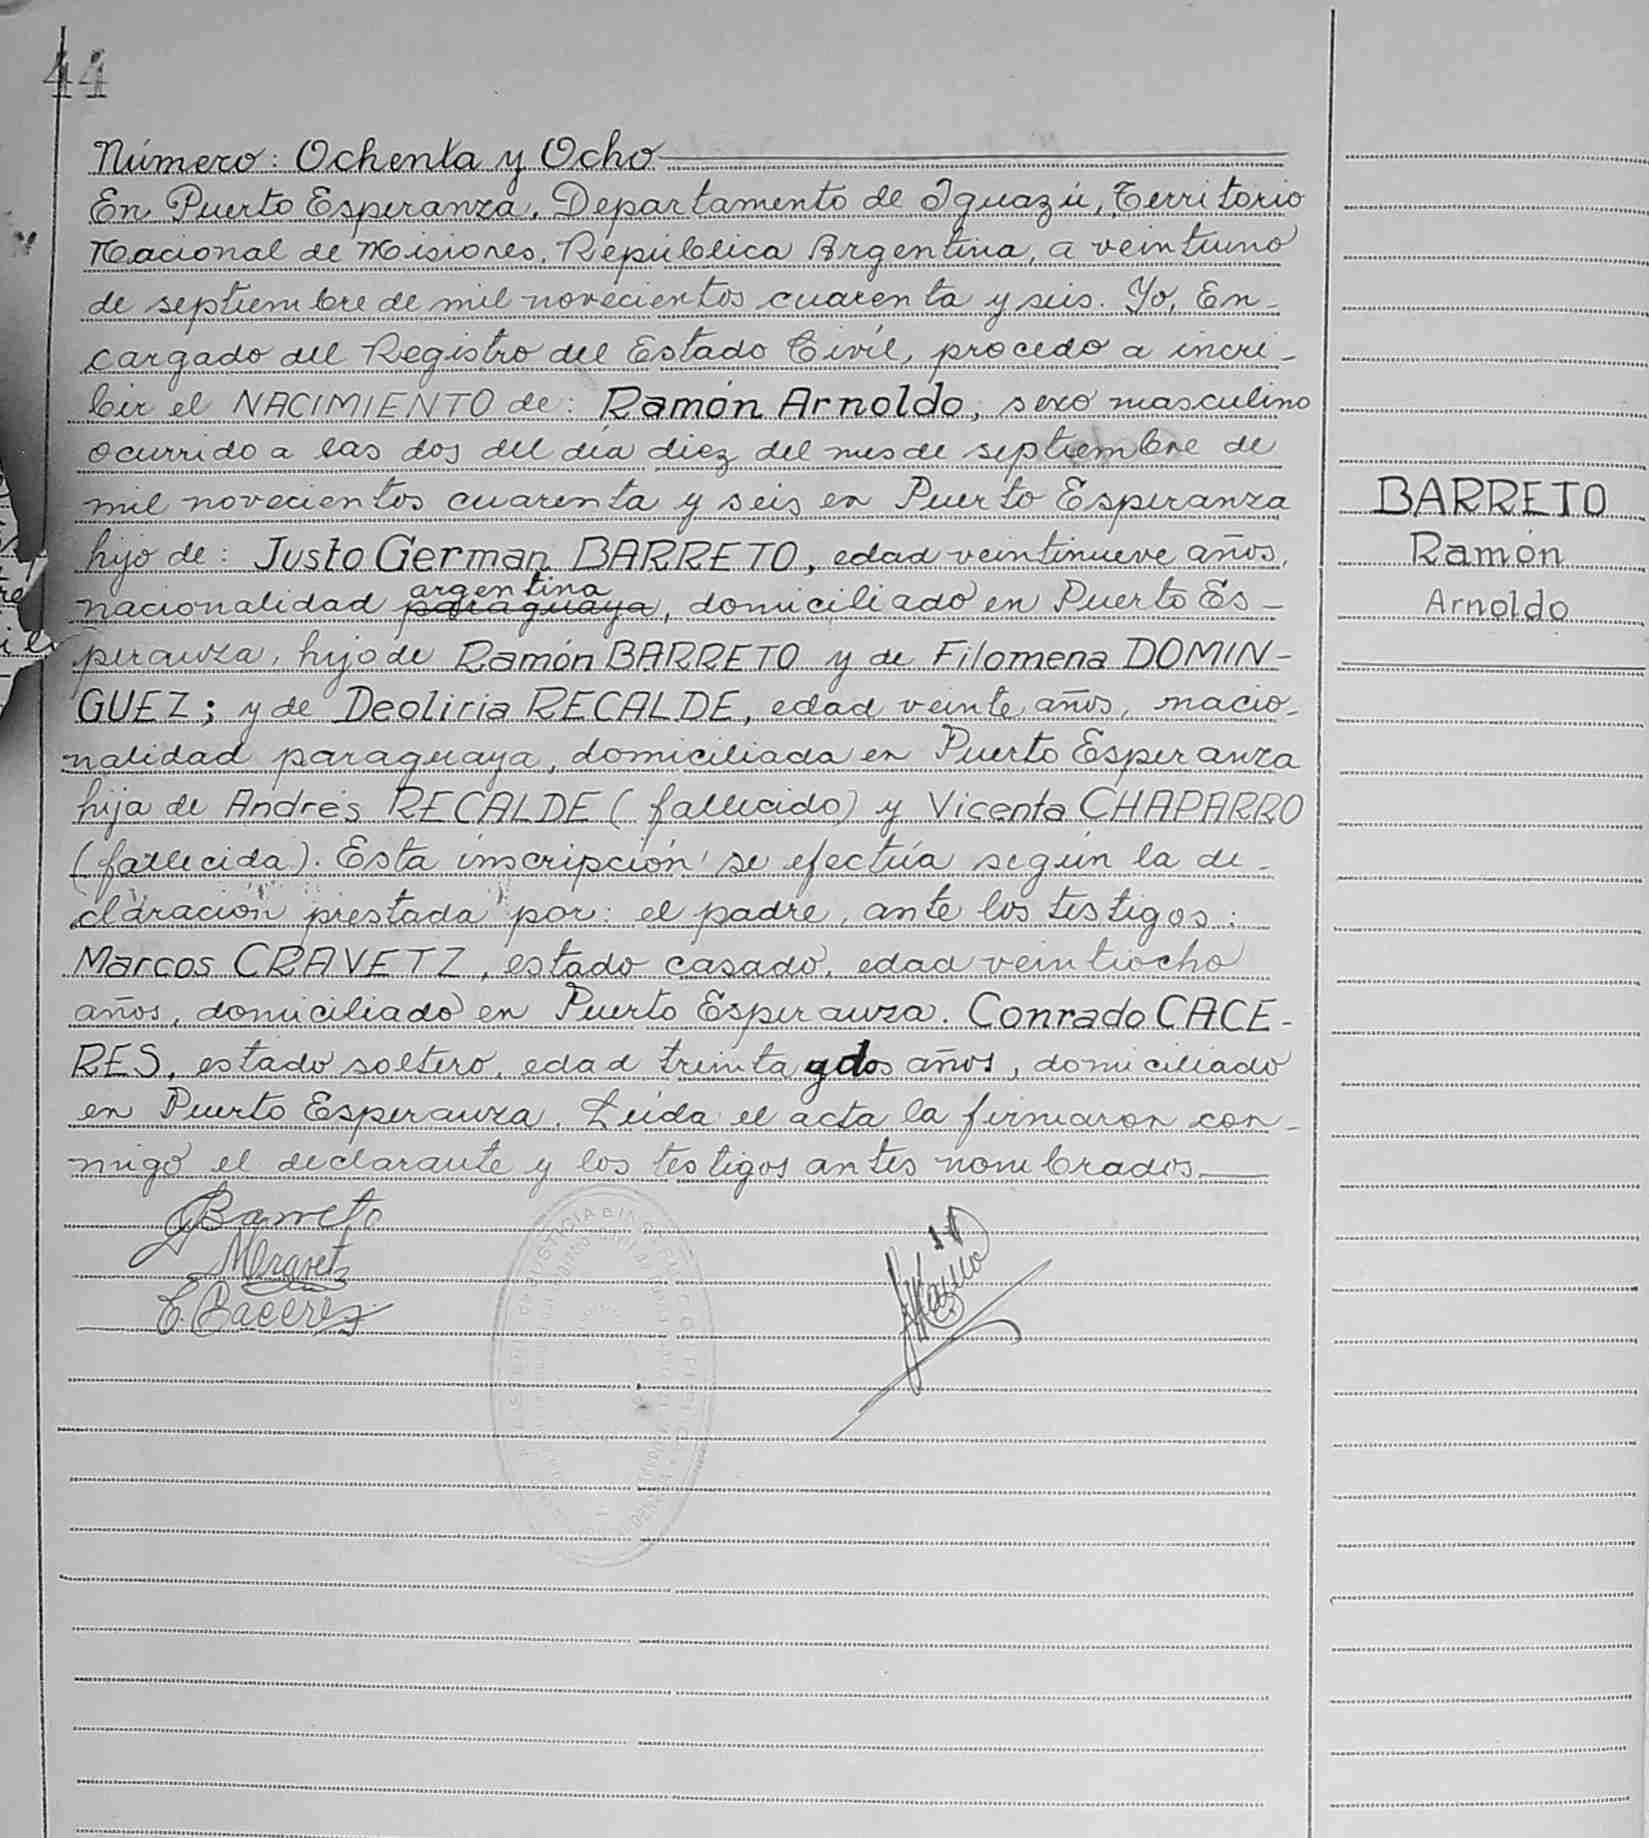 44
Número: Ochenta y Ocho
En Puerto Esperanza, Departamento de Iguazú, Territorio
Nacional de Misiones, República Argentina, a veintiuno
de septiembre de mil novecientos cuarenta y seis. Yo, En-
cargado del Registro del Estado Civil, procedo a incri-
bir el NACIMIENTO de: Ramón Arnoldo, sexo masculino
ocurrido a las dos del día diez del mes de septiembre de
mil novecientos cuarenta y seis en Puerto Esperanza
BARRETO
hijo de: Justo German BARRETO, edad veintinueve años,
Ramón
argentina
nacionalidad paraguaya, domiciliado en Puerto Es-
Arnoldo
peranza, hijo de Ramón BARRETO y de Filomena DOMIN-
GUEZ; y de Deoliria RECALDE, edad veinte años, nacio-
nalidad paraguaya, domiciliada en Puerto Esperanza
hija de Andrés RECALDE (fallecido) y Vicenta CHAPARRO
(fallecida). Esta inscripción se efectúa según la de-
claración prestada por: el padre, ante los testigos:
Marcos CRAVETZ, estado casado, edad veintiocho
años, domiciliado en Puerto Esperanza. Conrado CACE-
RES, estado soltero, edad treinta y dos años, domiciliado
en Puerto Esperanza. Leída el acta la firmaron con-
migo el declarante y los testigos antes nombrados.
JBarreto
C. Caceres